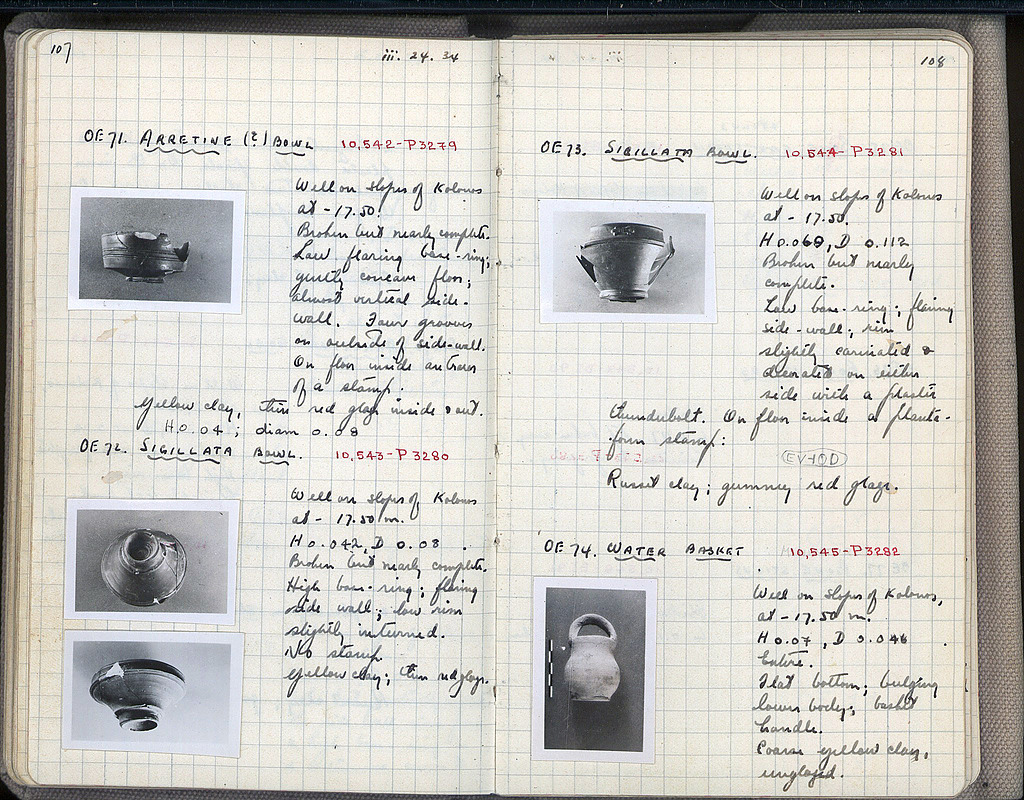 107
iii. 24. 34
OE 71. ARRETINE (?) BOWL 10,542-P3279
Well on slopes of Kolonos
at - 17.50.
Broken but nearly complete.
Low flaring base-ring;
gently concave floor;
almost vertical side-
wall. Four grooves
on outside of side-wall.
On floor inside
of a stamp.
Yellow clay, thin red glaze inside & out.
H 0.04; diam 0.08
OE 72. SIGILLATA BOWL. 10,543-P3280
Well on slopes of Kolonos
at - 17.50 m.
H 0.042, D 0.08.
Broken but nearly complete.
High base-ring; flaring
side wall; low rim
slightly inturned.
No stamp
Yellow clay; thin red glaze.
108
OE 73. SIGILLATA BOWL. 10,544-P3281
Well on slopes of Kolonos
at - 17.50.
H 0.068, D 0.112
Broken but nearly
complete.
Low base-ring; flaring
side-wall; rim
slightly carinated &
decorated on either
side with a plastic
thunderbolt. On floor inside a planta-
form stamp:
Russet clay; gummy red glaze.
OE 74. WATER BASKET 10,545-P3282
Well on slopes of Kolonos,
at - 17.50 m.
H 0.07, D 0.046
Entire.
Flat bottom; bulging
lower body; basket
handle.
Coarse yellow clay,
unglazed.